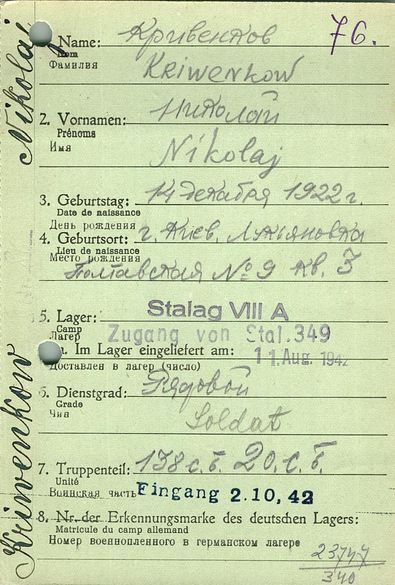 76.
Nikolaj
Kriwenkow
1. Name: Кривенков
Nom
Фамилия
Kriwenkow
2. Vornamen: Николай
Prénoms
Имя
Nikolaj
3. Geburtstag: 14 декабря 1922 г.
Date de naissance
День рождения
4. Geburtsort: г. Киев, Лукьяновка
Lieu de naissance
Место рождения
Полтавская № 9 кв. 3
5. Lager: Stalag VIII A
Camp
Лагерь
Zugang von Stal. 349
a. Im Lager eingeliefert am: 11. Aug. 1942
Доставлен в лагерь (число)
6. Dienstgrad: Рядовой
Grade
Чин
Soldat
7. Truppenteil: 138 с.б. 20. с.б.
Unité
Воинская часть
Eingang 2.10.42
8. Nr. der Erkennungsmarke des deutschen Lagers:
Matricule du camp allemand
Номер военнопленного в германском лагере
23747
340